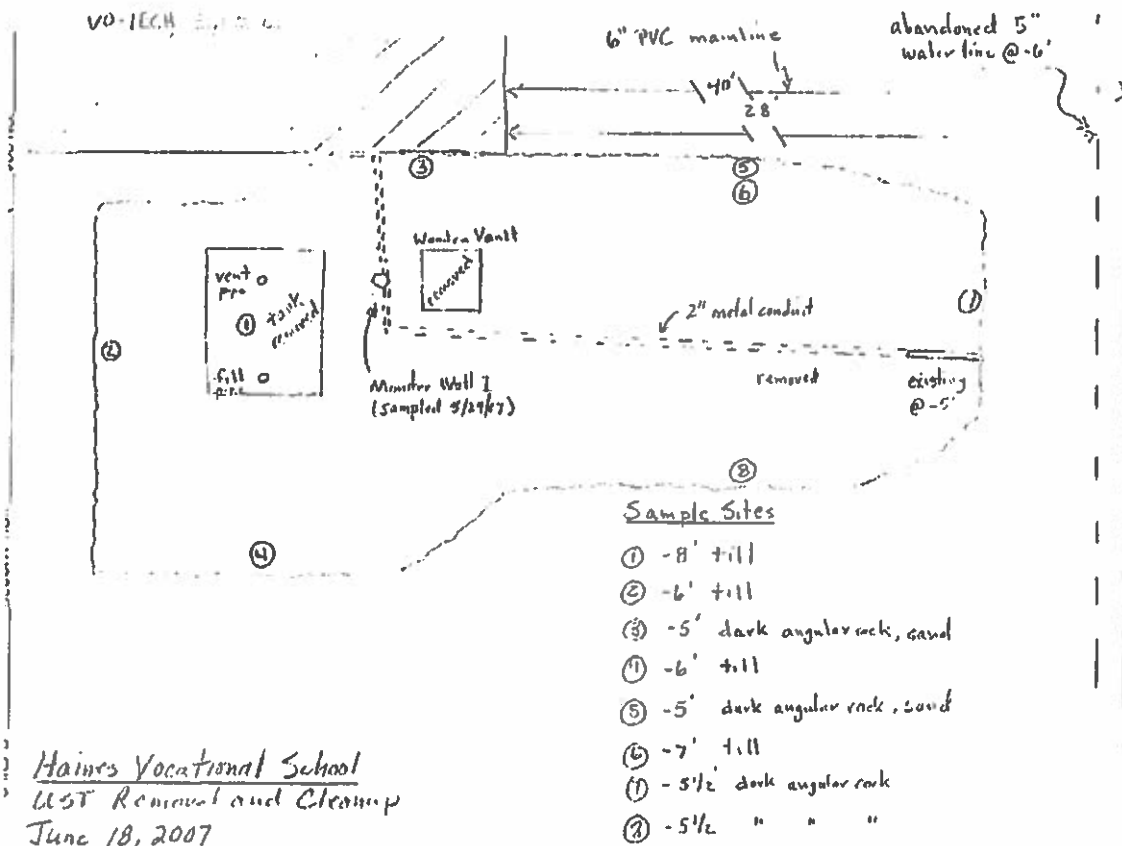 VO-TECH
6" PVC mainline
abandoned 5"
water line @ -6'
40'
28'
③
⑤
⑥
Wooden Vault
removed
vent
pipe
①
tank
removed
fill
pipe
②
2" metal conduit
removed
existing
@ -5'
Monitor Well I
(Sampled 5/29/07)
⑧
④
Sample Sites
① -8' till
② -6' till
③ -5' dark angular rock, sand
④ -6' till
⑤ -5' dark angular rock, sand
⑥ -7' till
⑦ -5 1/2' dark angular rock
⑧ -5 1/2 " " "
Haines Vocational School
UST Removal and Cleanup
June 18, 2007